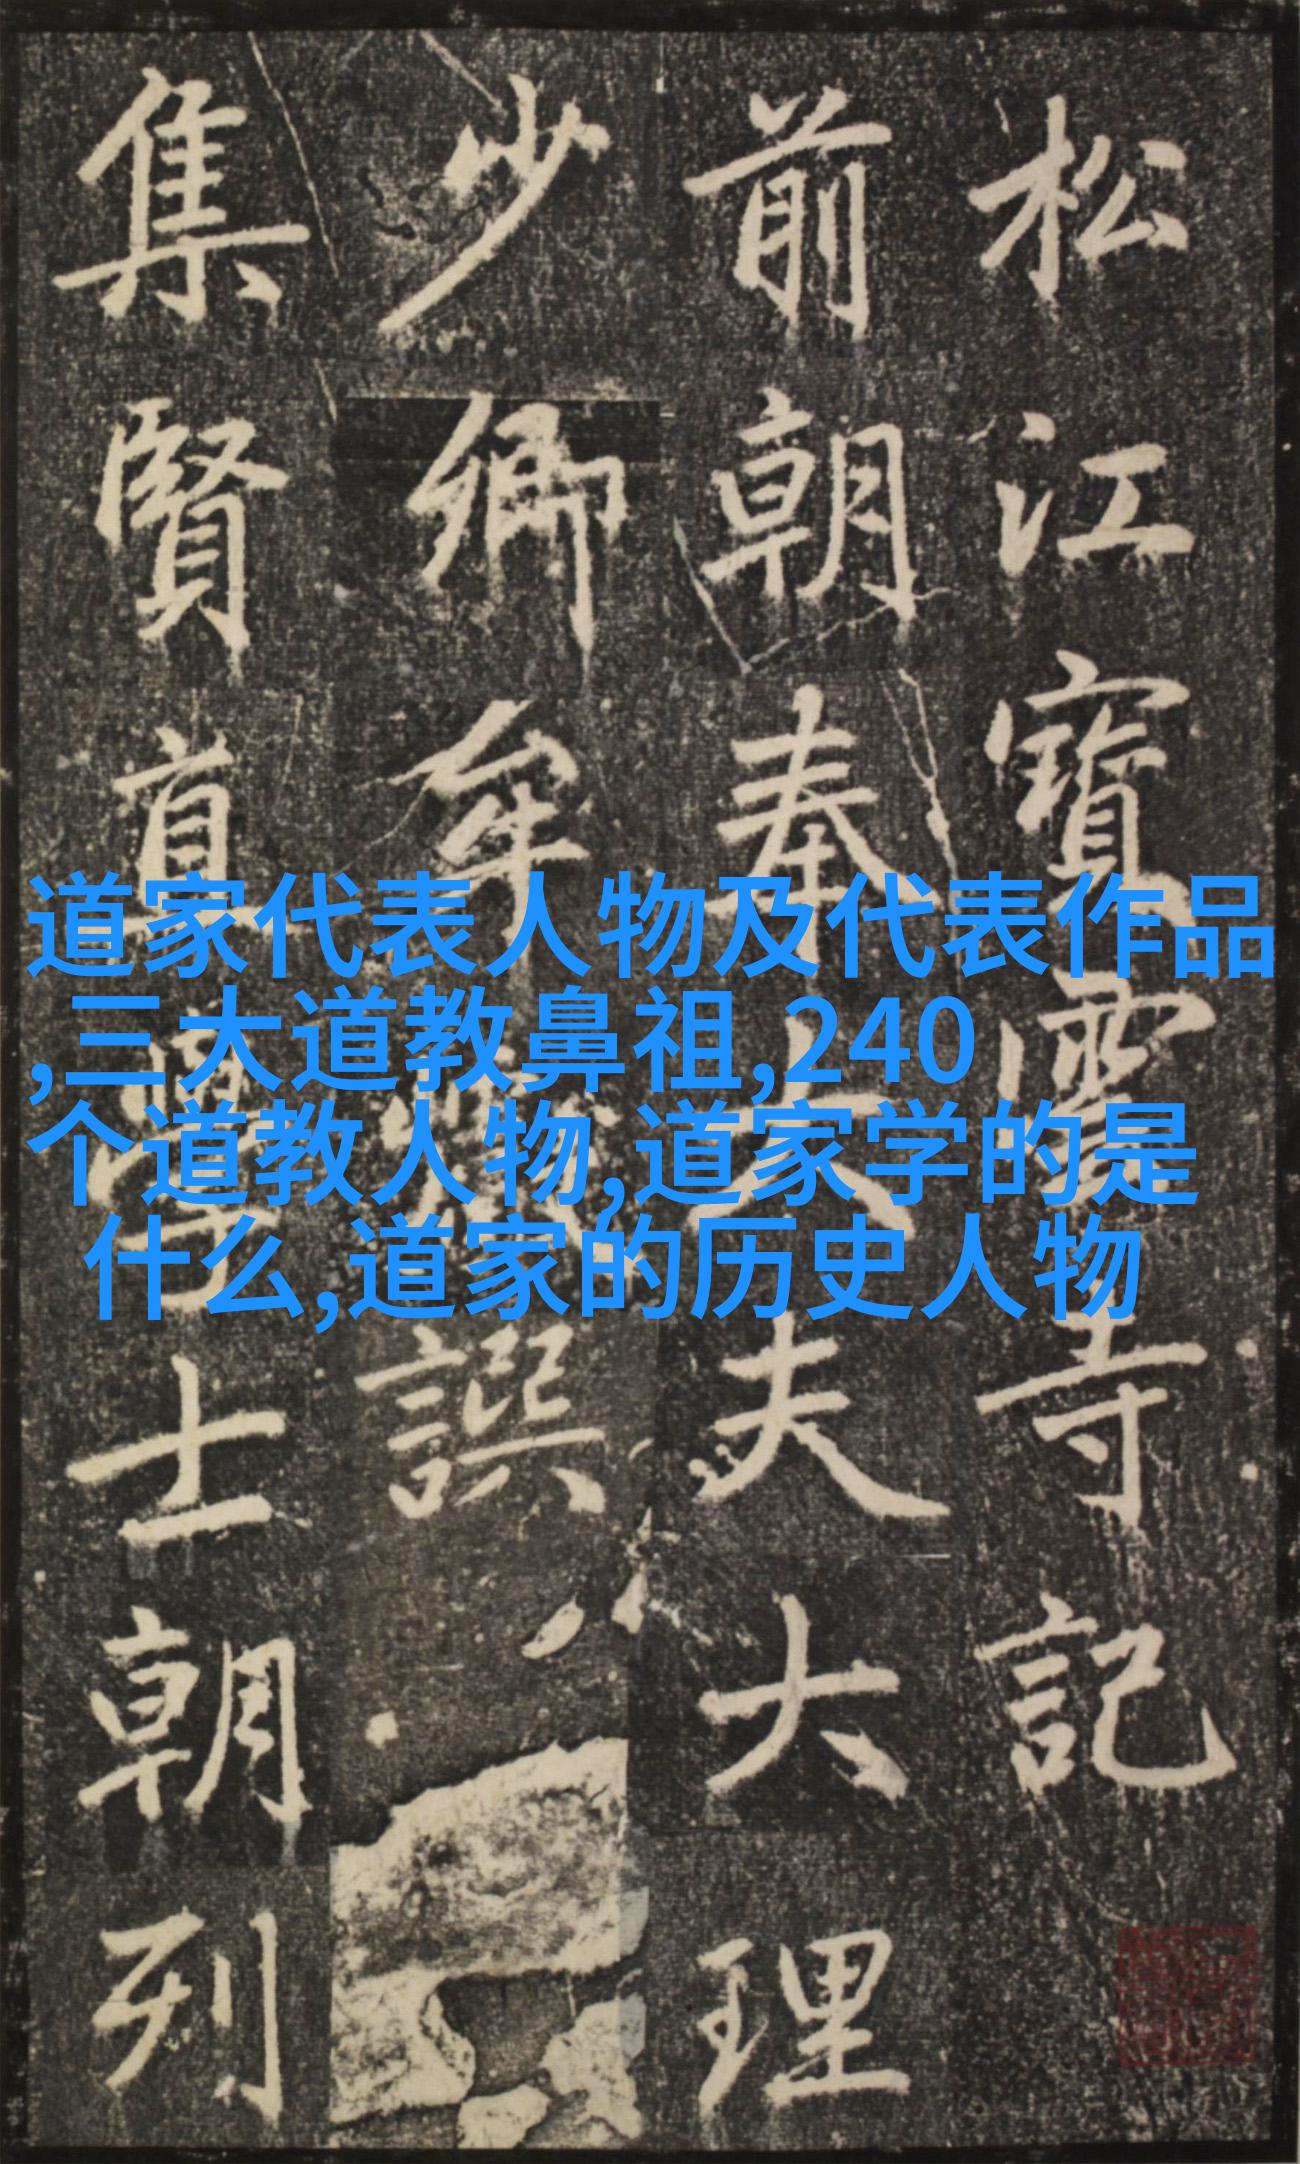 松江寶雲寺記
前朝奉大夫大理
少卿牟譔
集賢直學士朝列
道家代表人物及代表作品
,三大道教鼻祖,240
个道教人物,道家学的是
什么,道家的历史人物